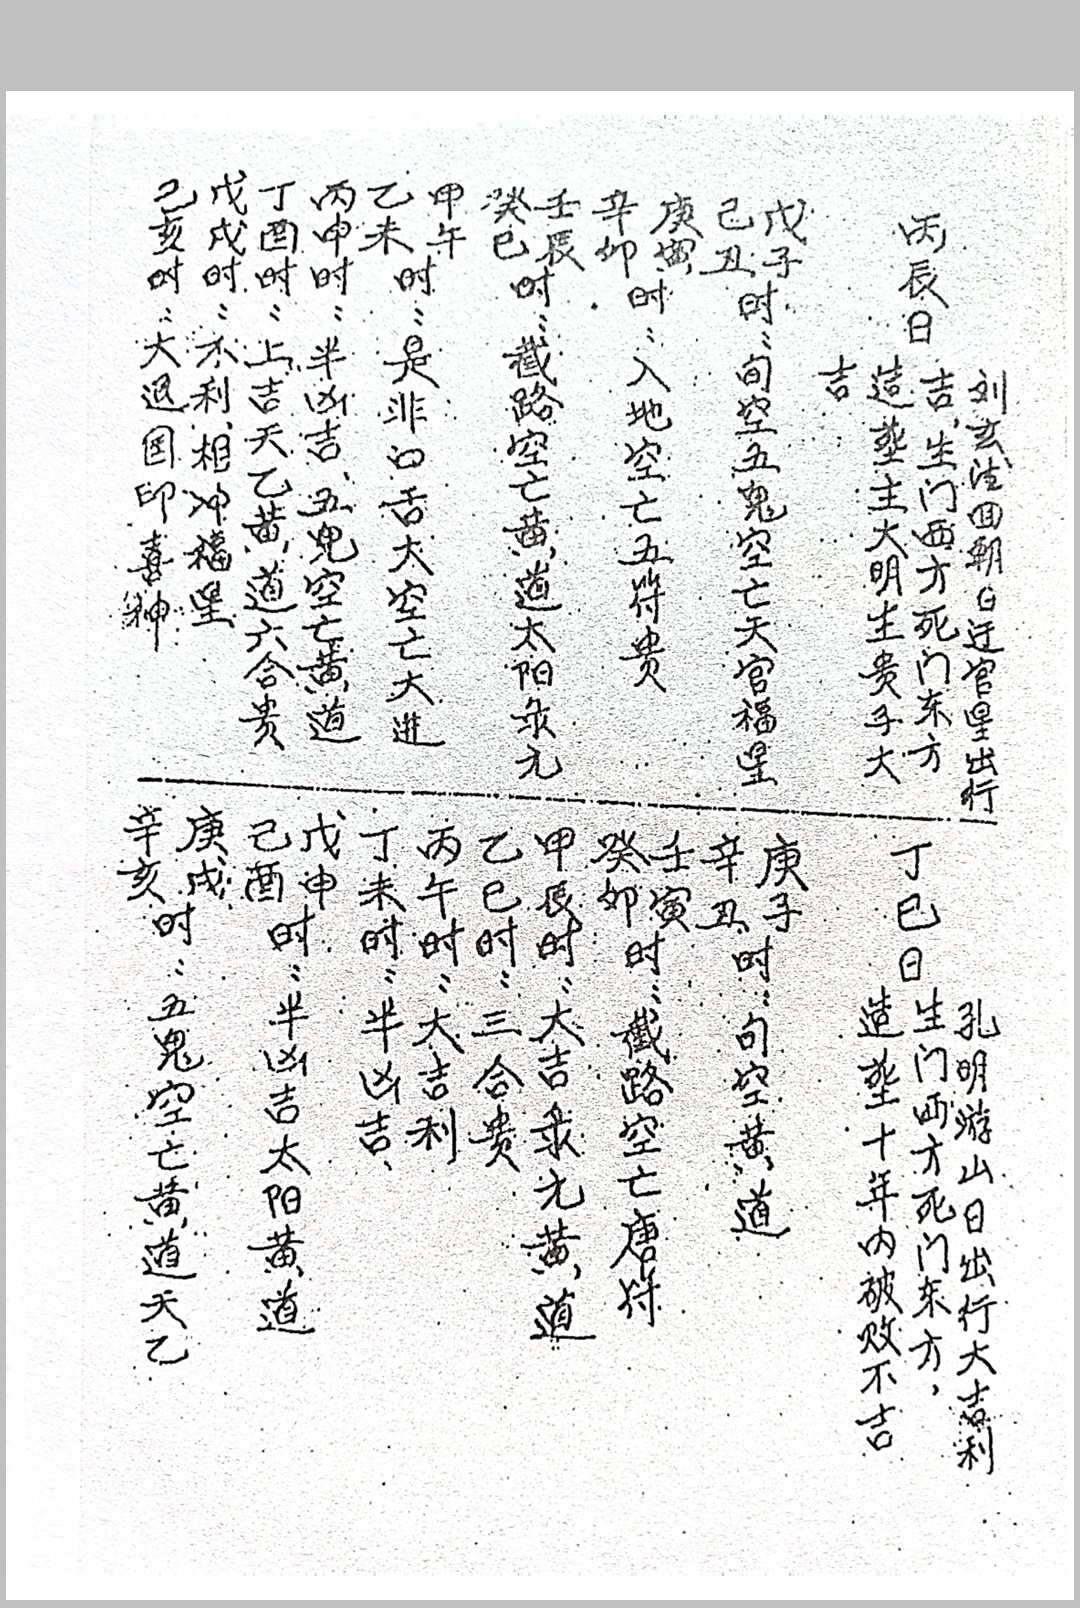 丙辰日
刘玄德回朝日迁官星出行
吉、生门西方死门东方
造塟主大明生贵子大
吉
戊子
己丑时：旬空五鬼空亡天官福星
庚寅
辛卯时：入地空亡五符贵
壬辰
癸巳时：截路空亡黄道太阳彔元
甲午
乙未时：是非口舌大空亡大进
丙申时：半凶吉、五鬼空亡黄道
丁酉时：上吉天乙黄道六合贵
戊戌时：不利、相冲福星
己亥时：大退国印喜神
丁巳日
孔明游山日出行大吉利
生门西方死门东方，
造塟十年内破败不吉
庚子
辛丑时：旬空黄道
壬寅
癸卯时：截路空亡唐符
甲辰时：大吉彔元黄道
乙巳时：三合贵
丙午时：大吉利
丁未时：半凶吉、
戊申
己酉时：半凶吉太阳黄道
庚戌
辛亥时：五鬼空亡黄道天乙